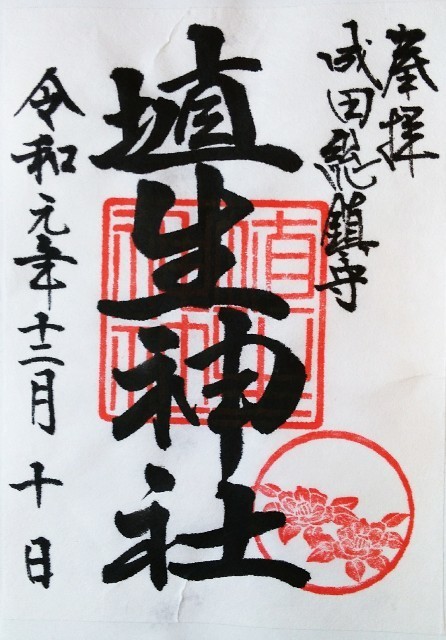 奉拝
成田総鎮守
埴生神社
令和元年十二月十日